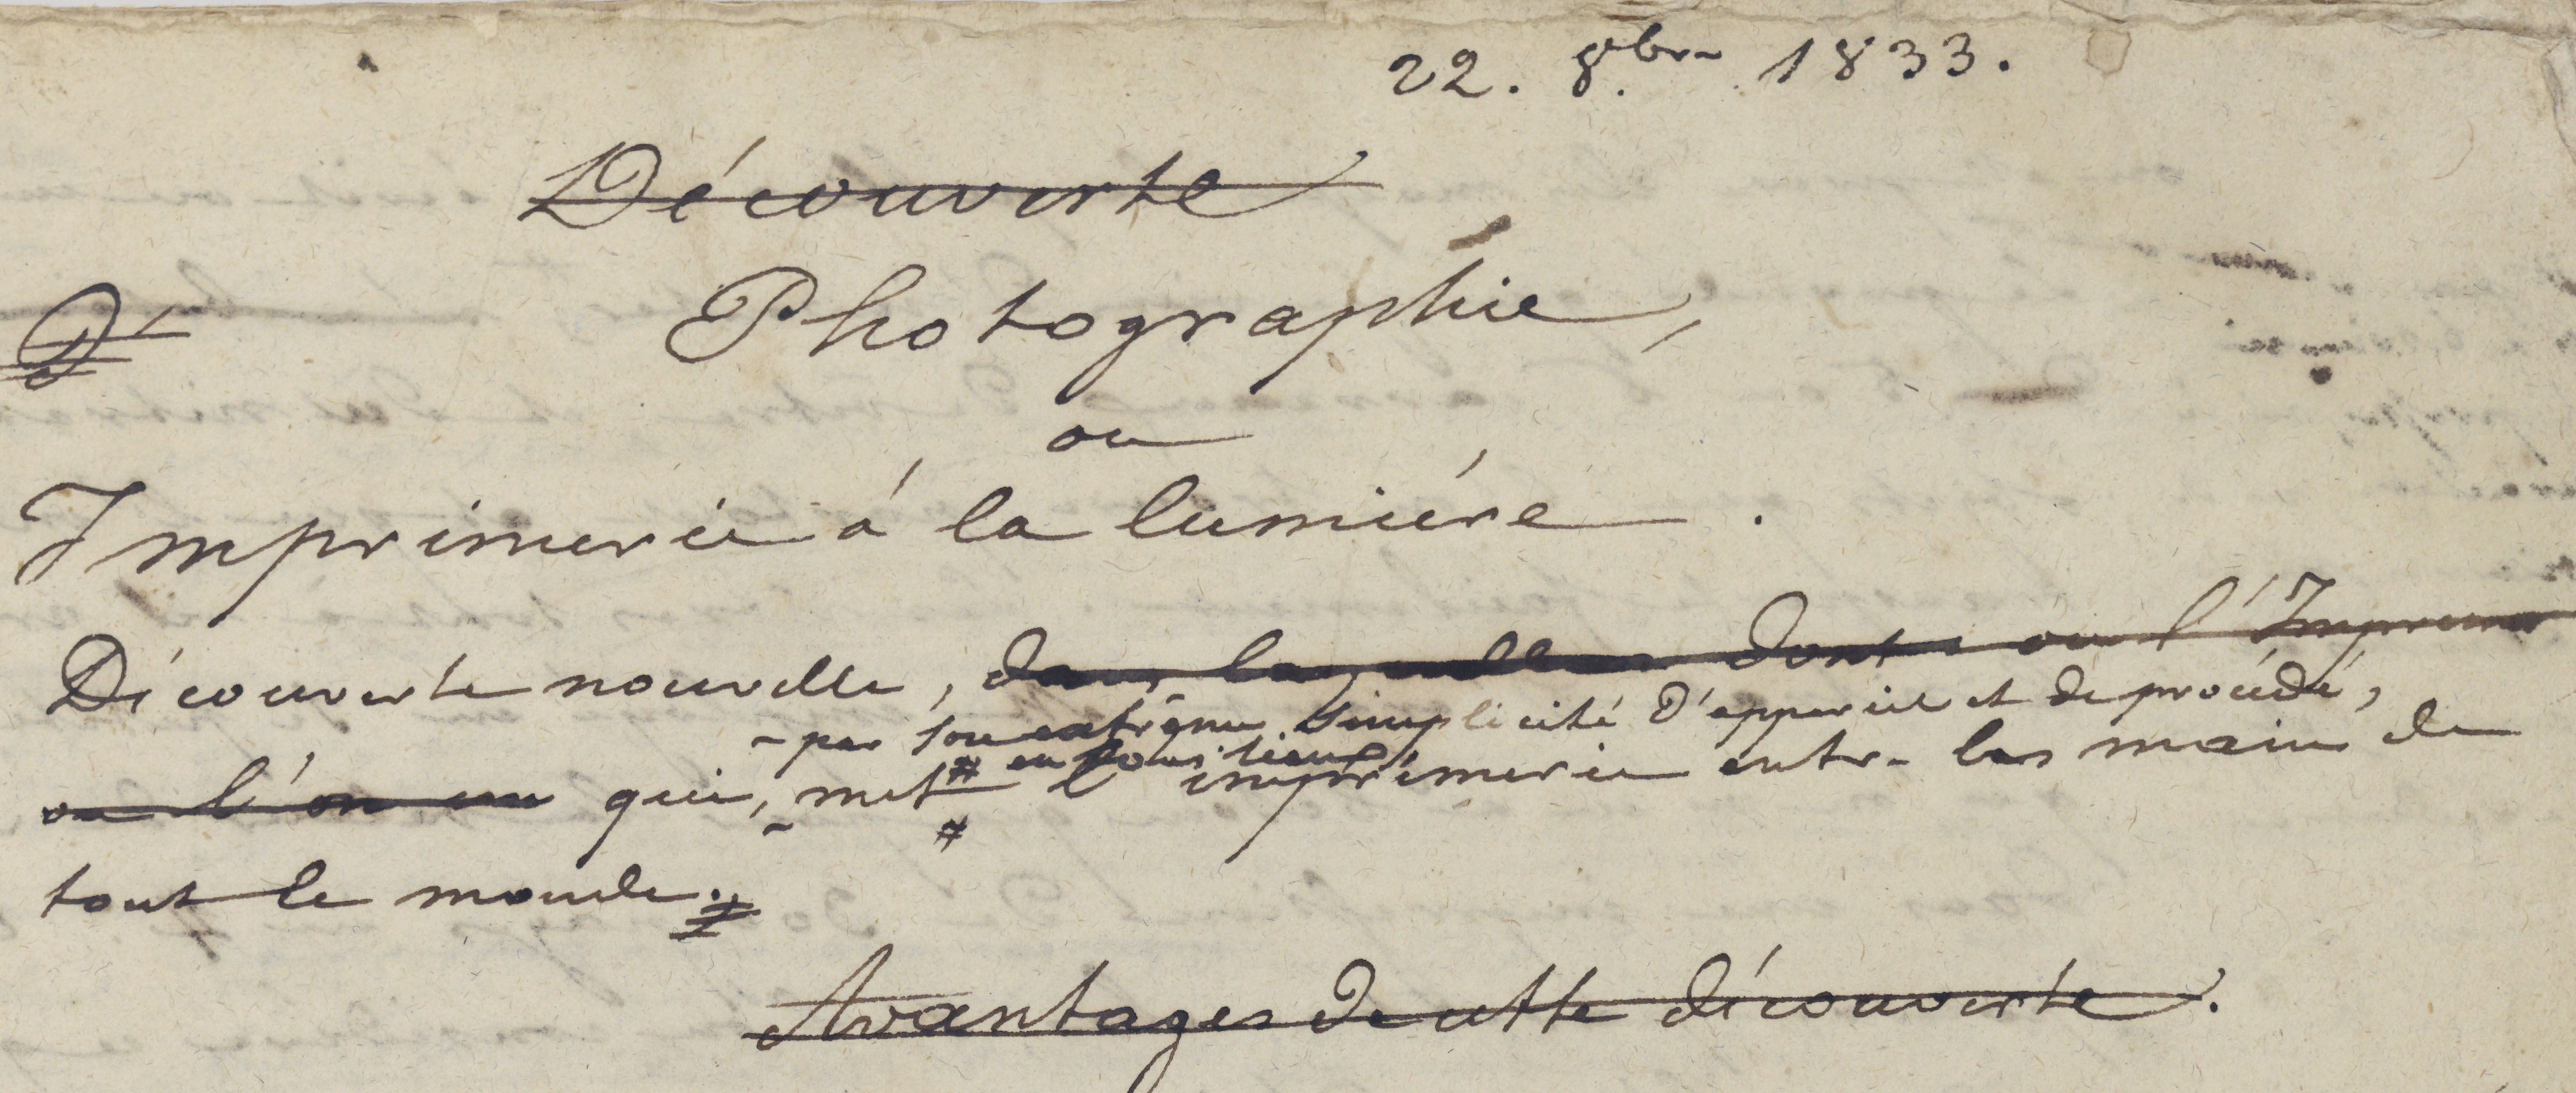 22. 8.bre 1833.
Découverte
Photographie,
ou
Imprimerie à la lumière.
Découverte nouvelle, dans laquelle dont où l'Imprimer
~ par son extrême simplicité d'appareil et de procédé,
# en quelque
ou l'on qui, ~ met # l'imprimerie entre les mains de
tout le monde.
Avantages de cette découverte.